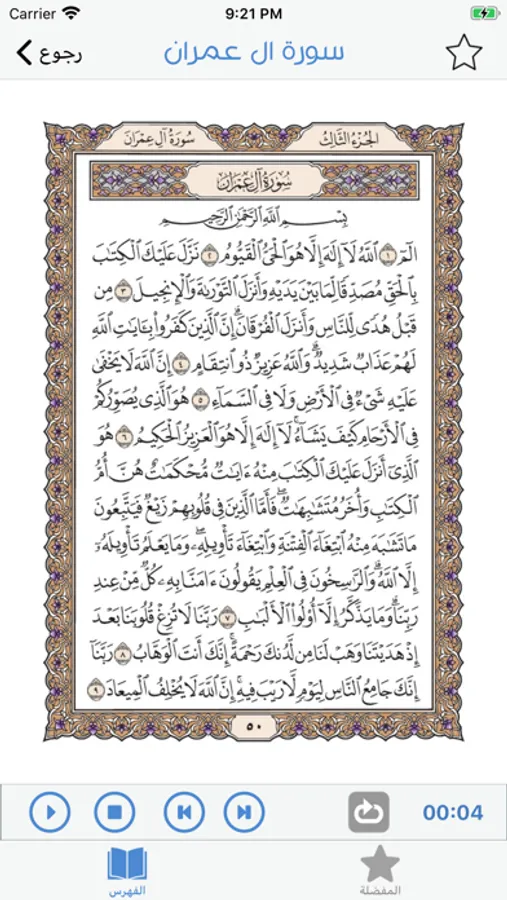 Carrier 9:21 PM
رجوع
سورة ال عمران
الجُزءُ الثَّالِثُ
سُورَةُ آلِ عِمْرَان
سُورَةُ آلِ عِمْرَان
بِسْمِ اللَّهِ الرَّحْمَٰنِ الرَّحِيمِ
الٓمٓ ١ ٱللَّهُ لَآ إِلَٰهَ إِلَّا هُوَ ٱلْحَىُّ ٱلْقَيُّومُ ٢ نَزَّلَ عَلَيْكَ ٱلْكِتَٰبَ
بِٱلْحَقِّ مُصَدِّقًا لِّمَا بَيْنَ يَدَيْهِ وَأَنزَلَ ٱلتَّوْرَىٰةَ وَٱلْإِنجِيلَ ٣ مِن
قَبْلُ هُدًى لِّلنَّاسِ وَأَنزَلَ ٱلْفُرْقَانَ ۗ إِنَّ ٱلَّذِينَ كَفَرُوا۟ بِـَٔايَٰتِ ٱللَّهِ
لَهُمْ عَذَابٌ شَدِيدٌ ۗ وَٱللَّهُ عَزِيزٌ ذُو ٱنتِقَامٍ ٤ إِنَّ ٱللَّهَ لَا يَخْفَىٰ
عَلَيْهِ شَىْءٌ فِى ٱلْأَرْضِ وَلَا فِى ٱلسَّمَآءِ ٥ هُوَ ٱلَّذِى يُصَوِّرُكُمْ
فِى ٱلْأَرْحَامِ كَيْفَ يَشَآءُ ۚ لَآ إِلَٰهَ إِلَّا هُوَ ٱلْعَزِيزُ ٱلْحَكِيمُ ٦ هُوَ
ٱلَّذِىٓ أَنزَلَ عَلَيْكَ ٱلْكِتَٰبَ مِنْهُ ءَايَٰتٌ مُّحْكَمَٰتٌ هُنَّ أُمُّ
ٱلْكِتَٰبِ وَأُخَرُ مُتَشَٰبِهَٰتٌ ۖ فَأَمَّا ٱلَّذِينَ فِى قُلُوبِهِمْ زَيْغٌ فَيَتَّبِعُونَ
مَا تَشَٰبَهَ مِنْهُ ٱبْتِغَآءَ ٱلْفِتْنَةِ وَٱبْتِغَآءَ تَأْوِيلِهِۦ ۗ وَمَا يَعْلَمُ تَأْوِيلَهُۥٓ
إِلَّا ٱللَّهُ ۗ وَٱلرَّٰسِخُونَ فِى ٱلْعِلْمِ يَقُولُونَ ءَامَنَّا بِهِۦ كُلٌّ مِّنْ عِندِ
رَبِّنَا ۗ وَمَا يَذَّكَّرُ إِلَّآ أُو۟لُوا۟ ٱلْأَلْبَٰبِ ٧ رَبَّنَا لَا تُزِغْ قُلُوبَنَا بَعْدَ
إِذْ هَدَيْتَنَا وَهَبْ لَنَا مِن لَّدُنكَ رَحْمَةً ۚ إِنَّكَ أَنتَ ٱلْوَهَّابُ ٨ رَبَّنَآ
إِنَّكَ جَامِعُ ٱلنَّاسِ لِيَوْمٍ لَّا رَيْبَ فِيهِ ۚ إِنَّ ٱللَّهَ لَا يُخْلِفُ ٱلْمِيعَادَ ٩
٥٠
00:04
الفهرس
المفضلة